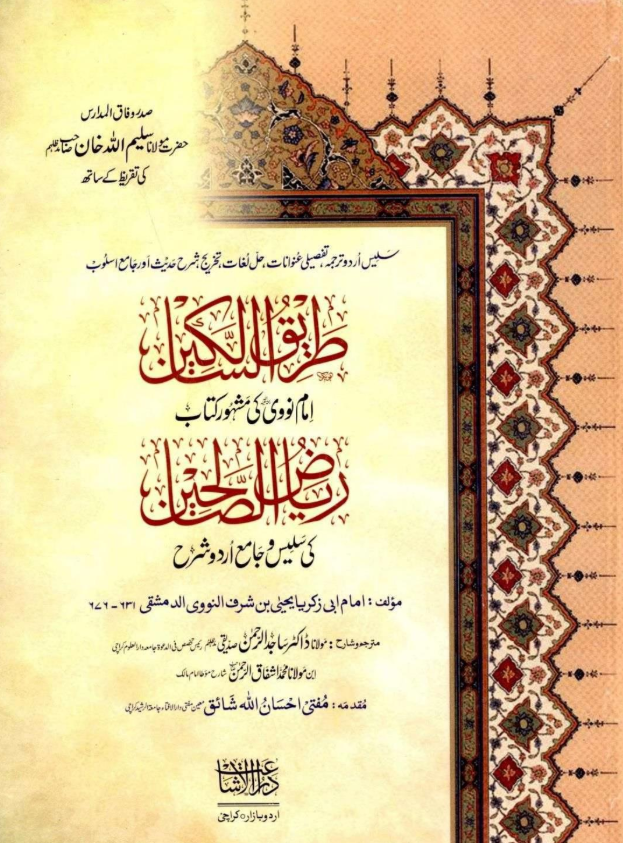 صدر وفاق المدارس
حضرت مولانا سلیم اللہ خان صاحب
کی تقریظ کے ساتھ
سلیس اردو ترجمہ، تفصیلی عنوانات، حل لغات، تخریج، شرح حدیث اور جامع اسلوب
طریق السالکین
امام نووی کی مشہور کتاب
ریاض الصالحین
کی سلیس و جامع اردو شرح
مؤلف: امام ابی زکریا یحیی بن شرف النووی الدمشقی ۶۳۱ - ۶۷۶
مترجم و شارح: مولانا ڈاکٹر ساجد الرحمن صدیقی رئیس تخصص فی الدعوۃ جامعہ دارالعلوم کراچی
ابن مولانا محمد اشفاق الرحمن شارح مؤطا امام مالک
مقدمہ: مفتی احسان اللہ شائق معین مفتی دارالافتاء جامعۃ الرشید کراچی
دار الاشاعت
اردو بازار کراچی